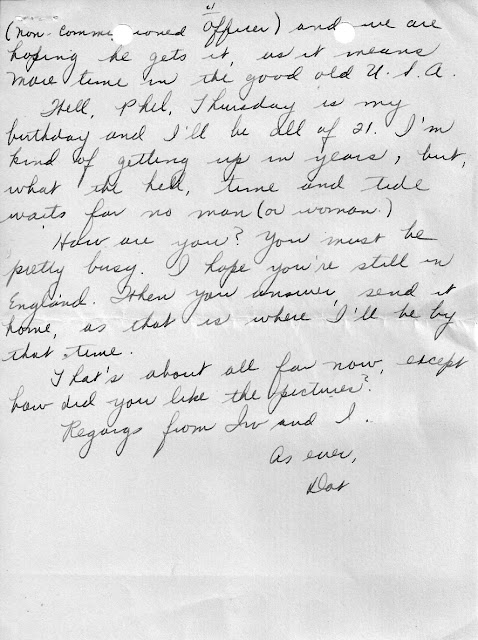 4
(non-commissioned officer) and we are
hoping he gets it, as it means
more time in the good old U.S.A.
Well, Phil, Thursday is my
birthday and I'll be all of 21. I'm
kind of getting up in years, but,
what the hell, time and tide
waits for no man (or woman.)
How are you? You must be
pretty busy. I hope you're still in
England. When you answer, send it
home, as that is where I'll be by
that time.
That's about all for now, except
how did you like the pictures?
Regards from Irv and I.
As ever,
Dot